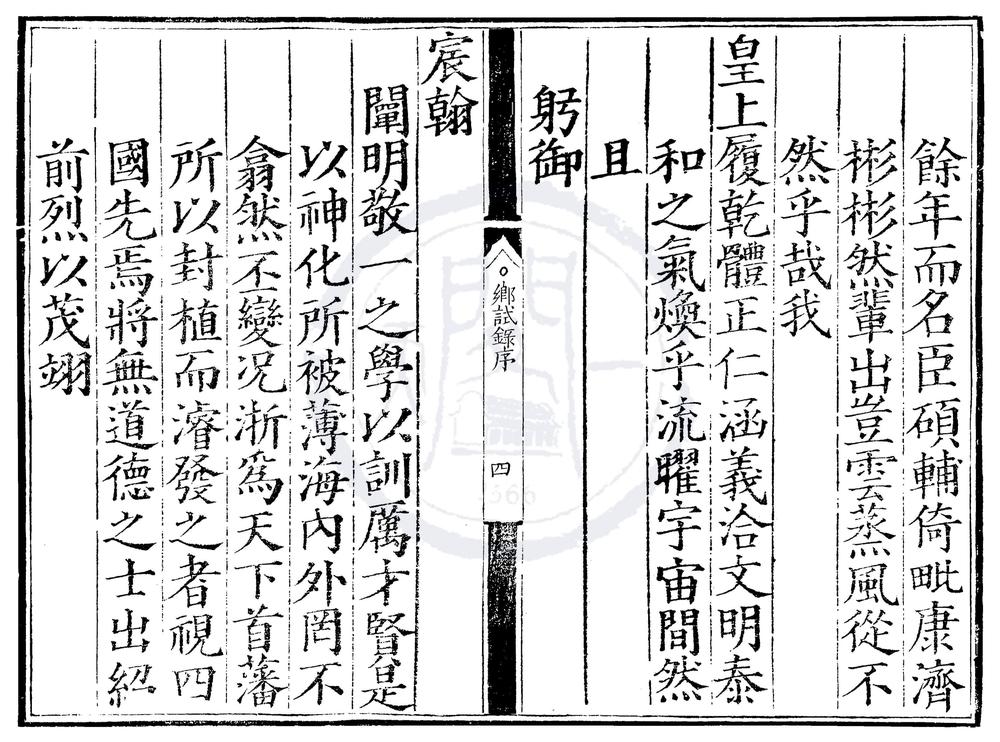 餘年而名臣碩輔倚毗康濟
彬彬然輩出豈雲蒸風從不
然乎哉我
皇上履乾體正仁涵義洽文明泰
和之氣煥乎流曜宇宙間然
且
躬御
鄉試錄序
四
宸翰
闡明敬一之學以訓厲才賢是
以神化所被薄海內外罔不
翕然丕變况浙爲天下首藩
所以封植而濬發之者視四
國先焉將無道德之士出紹
前烈以茂翊